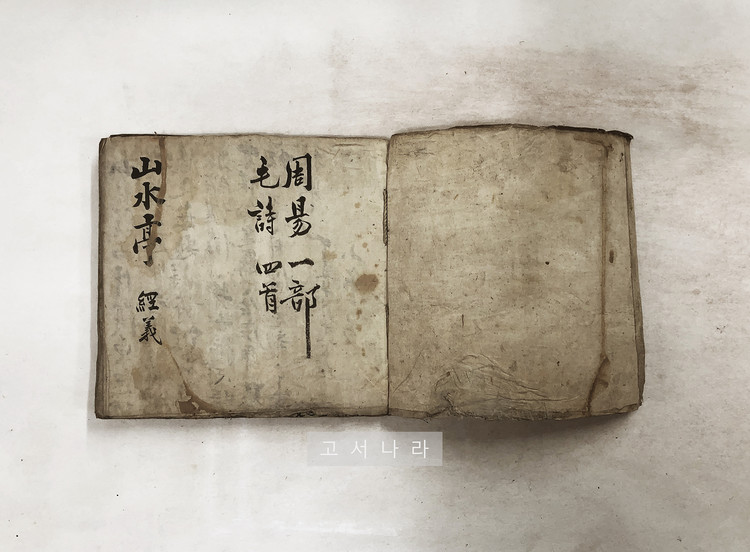 周易一部
毛詩四首
山水亭 經義
고서나라